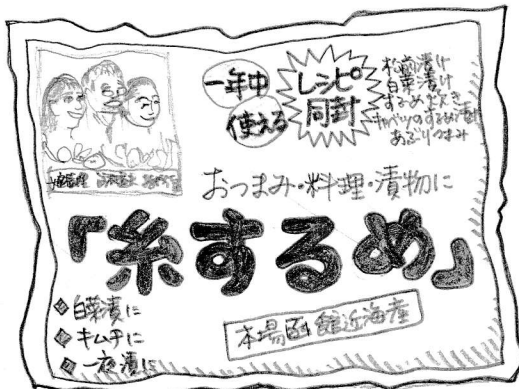 一年中
使える
レシピ
同封
松前漬け
白菜漬け
キャベツのするめ漬け
あぶりつまみ
おつまみ・料理・漬物に
「糸するめ」
白菜漬に
キムチに
一夜漬に
本場函館近海産